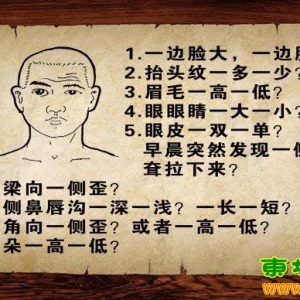 1.一边脸大，一边脸
2.抬头纹一多一少？
3.眉毛一高一低？
4.眼眼睛一大一小？
5.眼皮一双一单？
早晨突然发现一侧
耷拉下来？
梁向一侧歪？
侧鼻唇沟一深一浅？一长一短？
角向一侧歪？或者一高一低？
朵一高一低？
www.